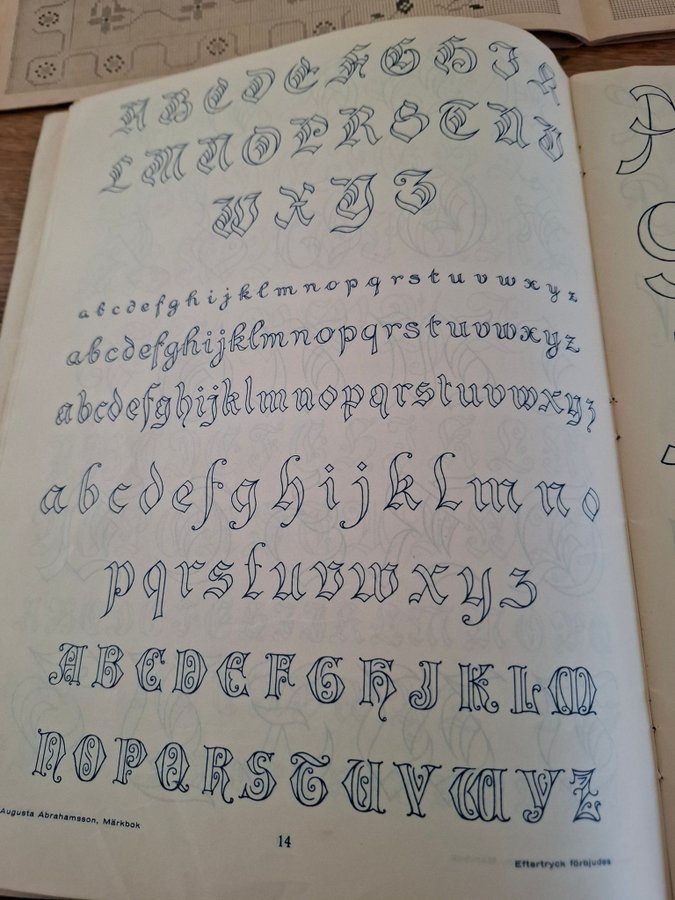 A B C D E F G H I K
L M N O P R S T U V
W X Y Z
a b c d e f g h i j k l m n o p q r s t u v w x y z
a b c d e f g h i j k l m n o p q r s t u v w x y z
a b c d e f g h i j k l m n o p q r s t u v w x y z
a b c d e f g h i j k l m n o
p q r s t u v w x y z
A B C D E F G H J K L M
N O P Q R S T U V W Y Z
Augusta Abrahamsson, Märkbok
14
Eftertryck förbjudes